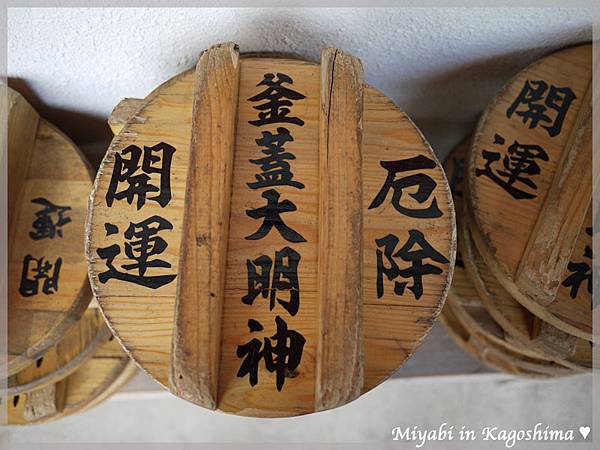 厄除
釜蓋大明神
開運
開運
開運
神
Miyabi in Kagoshima ♥